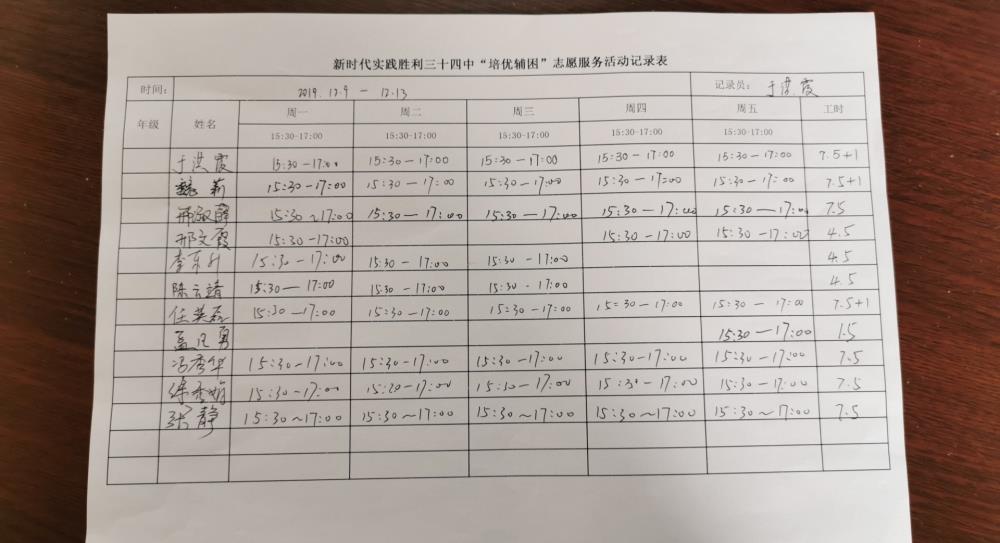 新时代实践胜利三十四中“培优辅困”志愿服务活动记录表
时间： 2019.12.9 — 12.13 记录员： 于洪霞
年级 姓名 周一 周二 周三 周四 周五 工时
15:30-17:00 15:30-17:00 15:30-17:00 15:30-17:00 15:30-17:00
于洪霞 15:30-17:00 15:30-17:00 15:30-17:00 15:30-17:00 15:30-17:00 7.5+1
魏莉 15:30-17:00 15:30-17:00 15:30-17:00 15:30-17:00 15:30-17:00 7.5+1
邢淑 15:30~17:00 15:30-17:00 15:30-17:00 15:30-17:00 15:30-17:00 7.5
邢文霞 15:30-17:00 15:30-17:00 15:30-17:00 4.5
李东升 15:30-17:00 15:30-17:00 15:30-17:00 4.5
陈云靖 15:30-17:00 15:30-17:00 15:30-17:00 4.5
任英磊 15:30-17:00 15:30-17:00 15:30-17:00 15:30-17:00 15:30-17:00 7.5+1
孟凡勇 15:30-17:00 1.5
冯秀华 15:30-17:00 15:30-17:00 15:30-17:00 15:30-17:00 15:30-17:00 7.5
徐秀娟 15:30-17:00 15:30-17:00 15:30-17:00 15:30-17:00 15:30-17:00 7.5
张静 15:30~17:00 15:30~17:00 15:30~17:00 15:30~17:00 15:30~17:00 7.5